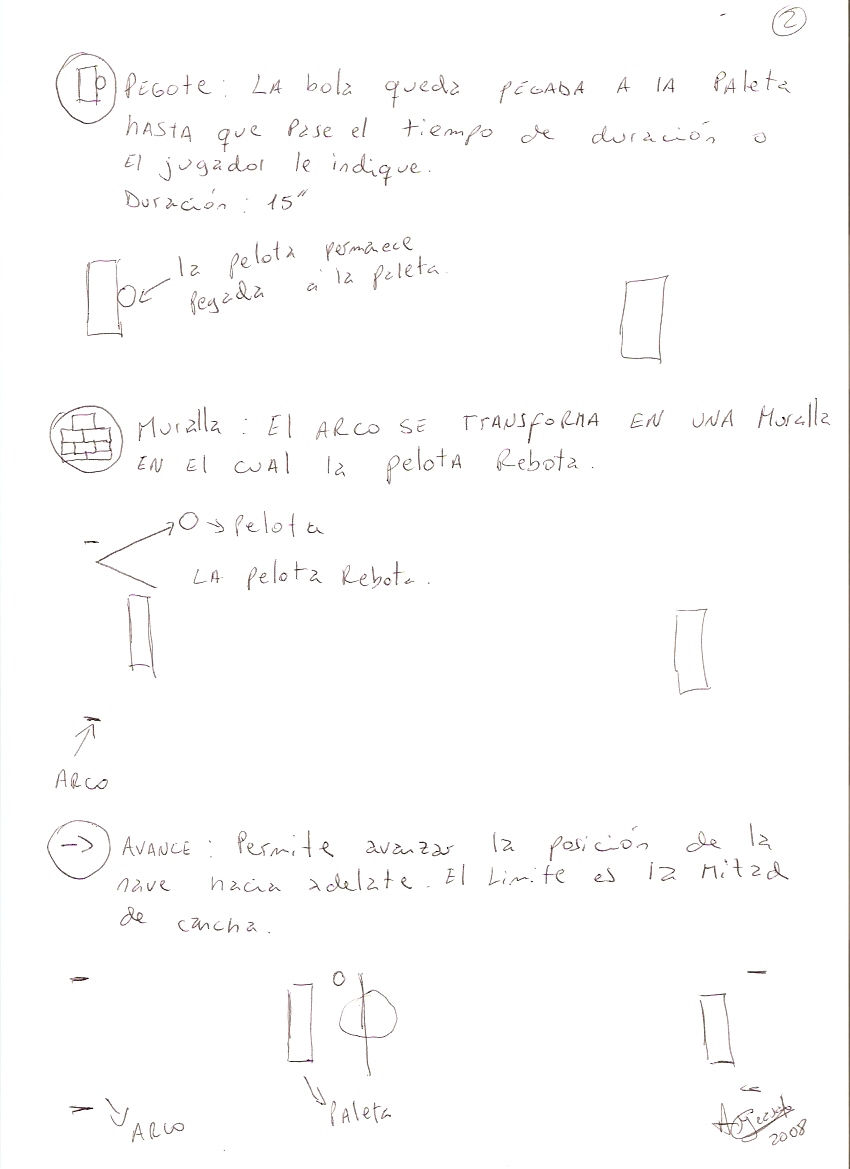 2
PEGOTE: LA bola queda PEGADA A lA PAleta
hASTA que Pase el tiempo de duración o
El jugador le indique.
Duración: 15"
la pelota permaece
Pegada a la paleta.
Muralla: El ARCO SE TRANSfORMA EN UNA Muralla
EN El CUAl la PelotA Rebota.
Pelota
LA Pelota Rebota.
ARCO
AVANCE: Permite avanzar la posición de la
nave hacia adelate. El Limite es la Mitad
de cancha.
PAleta
ARCO
2008